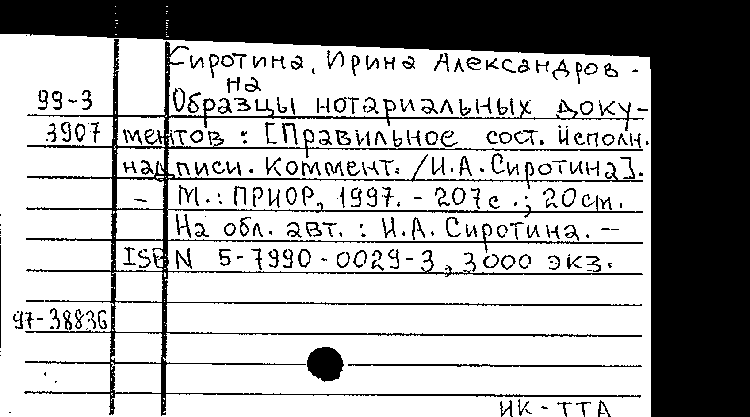 Сиротина, Ирина Александров-
на
99-3 Образцы нотариальных доку-
3907 ментов : [Правильное сост. исполн.
надписи. Коммент. /И.А.Сиротина].
– М.: ПРИОР, 1997. - 207с.; 20см.
На обл. авт. : И.А. Сиротина. –
ISBN 5-7990-0029-3, 3000 экз.
97-38836
ИК-ТТА